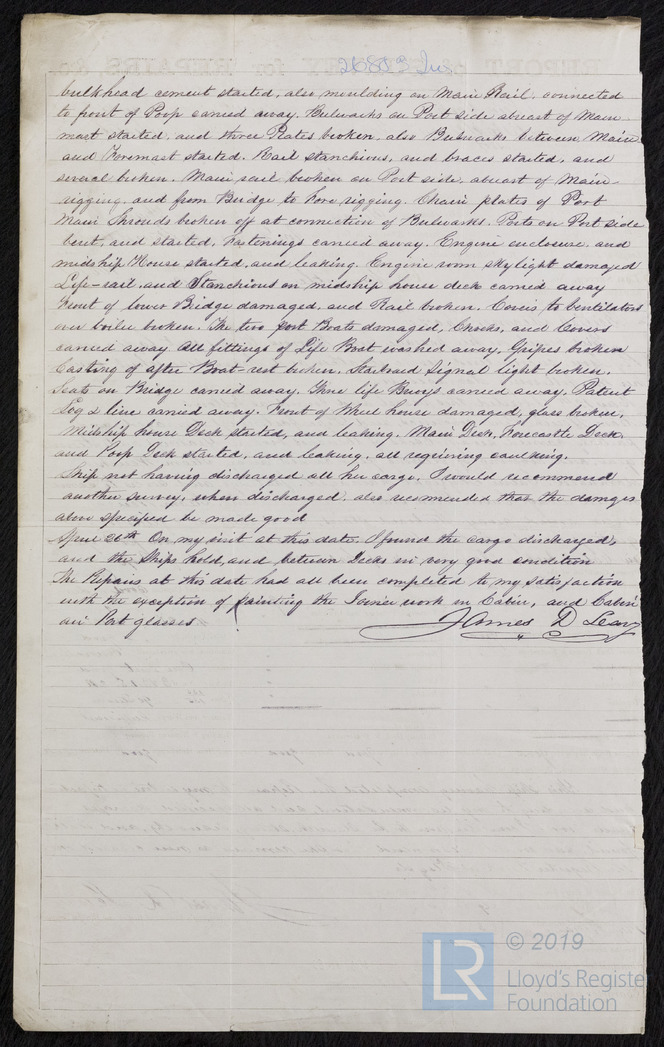 26883 Iro
bulkhead cement started, also moulding on Main Rail, connected
to front of Poop carried away. Bulwarks on Port side abreast of Main
mast started, and three Plates broken, also Bulwarks between Main
and Foremast started. Rail stanchions, and braces started, and
several broken. Main rail broken on Port side, abreast of Main
rigging, and from Bridge to Fore rigging. Chain plates of Port
Main Shrouds broken off at connection of Bulwarks. Ports on Port side
bent, and started, fastenings carried away. Engine enclosure and
midship House started, and leaking. Engine room skylight damaged
Life-rail, and Stanchions on midship house deck carried away
Front of lower Bridge damaged, and Rail broken. Covers to Ventilators
over boiler broken. The two port Boats damaged, Chocks, and Covers
carried away. All fittings of Life Boat washed away, Gripes broken
Casting of after Boat-rest broken. Starboard Signal light broken.
Seats on Bridge carried away. Three life Buoys carried away. Patent
Log & line carried away. Front of Wheel house damaged, glass broken,
Midship house Deck started, and leaking. Main Deck, Forecastle Deck,
and Poop Deck started, and leaking, all requiring caulking.
Ship not having discharged all her cargo, I would recommend
another survey, when discharged, also recommended that the damages
above specified be made good
April 26th On my visit at this date I found the cargo discharged,
and the Ships hold, and between Decks in very good condition
The Repairs at this date had all been completed to my satisfaction
with the exception of painting the Joiner work in Cabin, and Cabin
air Port glasses
James D Leary
© 2019
LR
Lloyd's Register
Foundation